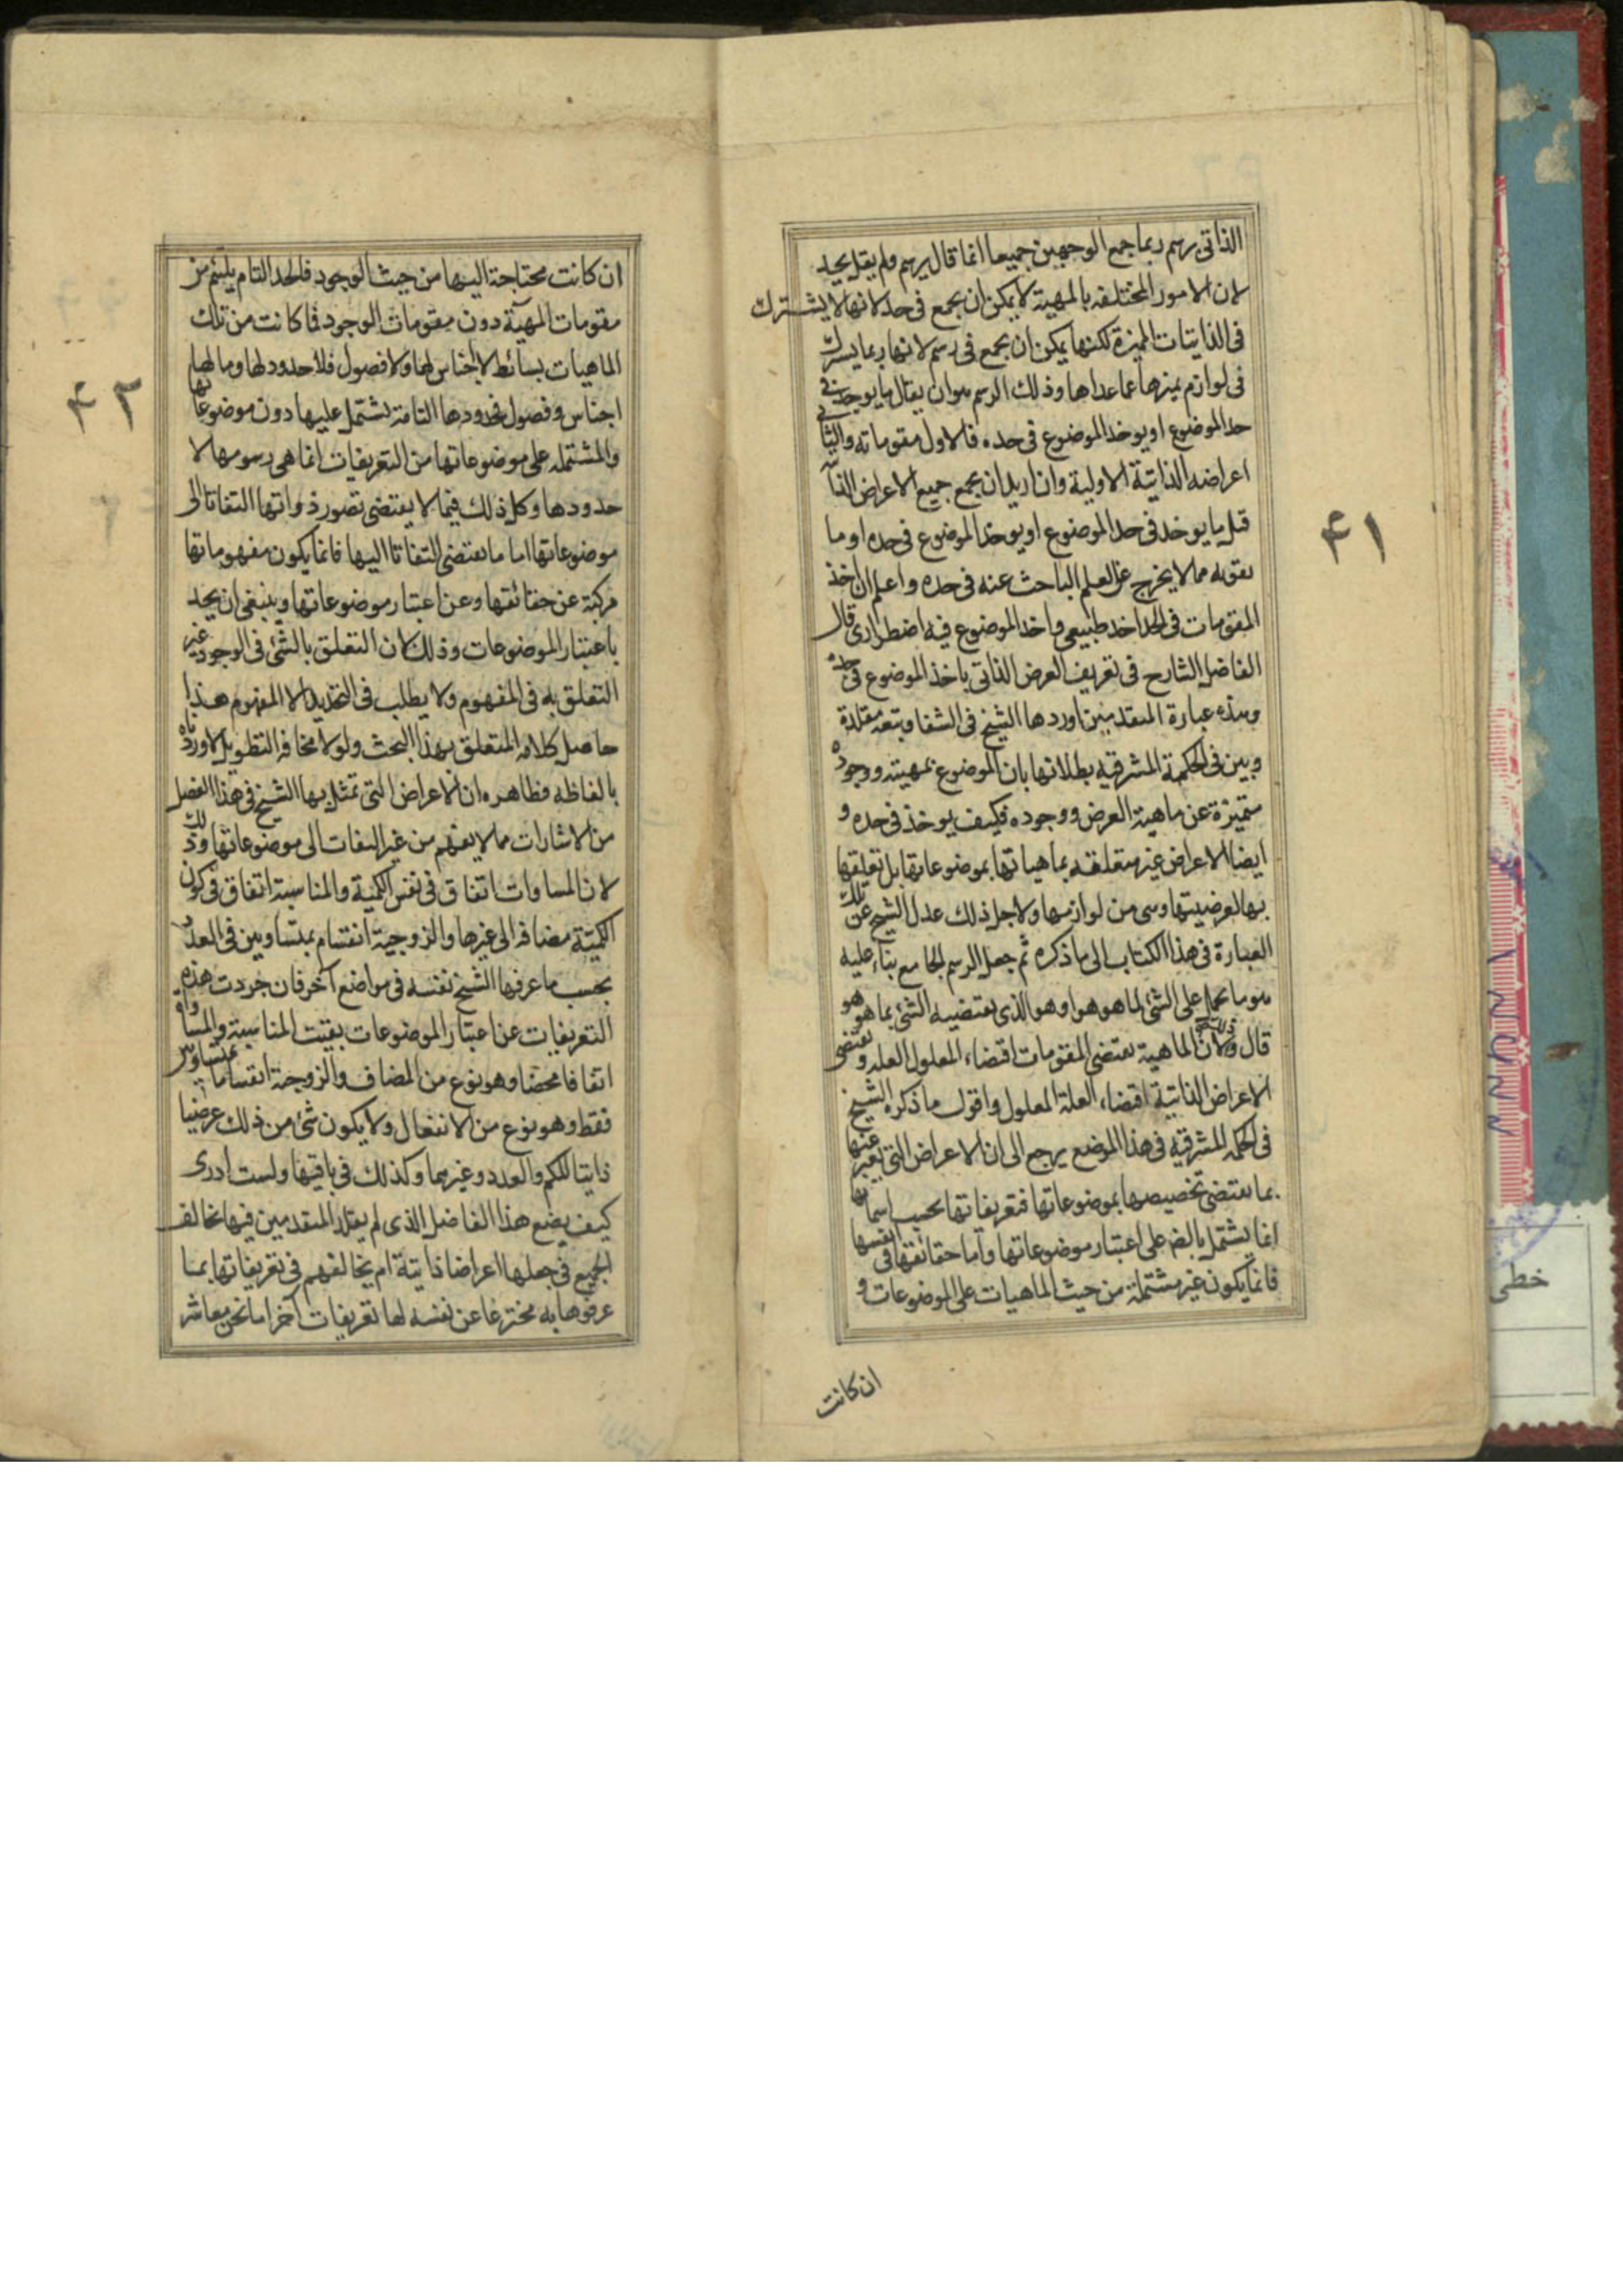 الذاتى يرسم ربما جمع الوجهين جميعا انما قال يرسم ولم يقل يحد
لان الامور المختلفه بالمهية لا يمكن ان يجمع فى حد لانها لا يشترك
فى الذاتيات المميزة لكنها يمكن ان يجمع فى رسم لانها ربما يشترك
فى لوازم يميزها عما عداها وذلك الرسم هو ان يقال ما يوجد فى
حد الموضوع او يوخذ الموضوع فى حده فالاول مقوماته والثانى
اعراضه الذاتية الاولية وان اريد ان يجمع جميع الاعراض الذاتية
قيل ما يوخذ فى حد الموضوع او يوخذ الموضوع فى حده او ما
يقومه مما لا يخرج عن العلم الباحث عنه فى حده واعلم ان اخذ
المقومات فى الحد اخذ طبيعى واخذ الموضوع فيه اضطرارى قال
الفاضل الشارح فى تعريف العرض الذاتى باخذ الموضوع فى حده
وهذه عبارة المتقدمين اوردها الشيخ فى الشفا وتبعه مقلدة
وبين فى الحكمة المشرقيه بطلانها بان الموضوع بمهيته ووجوده
متميزة عن ماهية العرض ووجوده فكيف يوخذ فى حده و
ايضا الاعراض غير متعلقه بماهياتها بموضوعاتها بل تعلقها
بها لعرضيتها وهى من لوازمها ولاجل ذلك عدل الشيخ عن تلك
العبارة فى هذا الكتاب الى ما ذكره ثم جعل الرسم الجامع بناء عليه
هو ما يحمل على الشئ لما هو هو او هو الذى يقتضيه الشئ بما هو هو
قال وذلك لان الماهية يقتضى المقومات اقتضاء المعلول العله ويقتضى
الاعراض الذاتية اقتضاء العلة المعلول واقول ما ذكره الشيخ
فى الحكمه المشرقيه فى هذا الموضع يرجع الى ان الاعراض التى يعبر عنها
بما يقتضى تخصيصها بموضوعاتها فتعريفاتها بحسب اسمائها
انما يشتمل بالضم على اعتبار موضوعاتها واما حقائقها فى انفسها
فانما يكون غير مشتملة من حيث الماهيات على الموضوعات و
ان كانت
٤١
ان كانت محتاجة اليها من حيث الوجود فالحد التام يلتئم من
مقومات المهية دون مقومات الوجود فما كانت من تلك
الماهيات بسائط لا اجناس لها ولا فصول فلا حدود لها وما لها
اجناس وفصول فحدودها التامة يشتمل عليها دون موضوعاتها
والمشتمله على موضوعاتها من التعريفات انما هى رسومها لا
حدودها وكل ذلك فيما لا يقتضى تصور ذواتها التفاتا الى
موضوعاتها اما ما يقتضى التفاتا اليها فانما يكون مفهوماتها
مركبة عن حقائقها وعن اعتبار موضوعاتها وينبغى ان يحد
باعتبار الموضوعات وذلك لان التعلق بالشئ فى الوجود غير
التعلق به فى المفهوم ولا يطلب فى التحديد الا المفهوم هذا
حاصل كلامه المتعلق بهذا البحث ولولا مخافه التطويل لاوردته
بالفاظه فظاهره ان الاعراض التى تمثل بها الشيخ فى هذا الفصل
من الاشارات مما لا يفهم من غير التفات الى موضوعاتها وذلك
لان المساوات اتفاق فى نفس الكمية والمناسبة اتفاق فى كون
الكمية مضافه الى غيرها والزوجية انقسام بمتساويين فى العدد
بحسب ما عرفها الشيخ نفسه فى مواضع آخر فان جردت هذه
التعريفات عن اعتبار الموضوعات بقيت المناسبة والمساواة
اتفاقا محضا وهو نوع من المضاف والزوجة انقساما بمتساويين
فقط وهو نوع من الانفعال ولا يكون شئ من ذلك عرضيا
ذاتيا للكم والعدد وغيرهما وكذلك فى باقيها ولست ادرى
كيف يضع هذا الفاضل الذى لم يقلد المتقدمين فيها مخالف
الجميع فى جعلها اعراضا ذاتية ام يخالفهم فى تعريفاتها بما
عرفوها به مخترعا عن نفسه لها تعريفات آخر اما نحن معاشر
٤٢
خطى